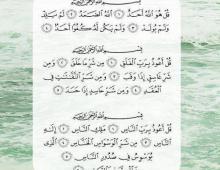 بسم الله الرحمن الرحيم
قُلْ هُوَ اللَّهُ أَحَدٌ ۝ اللَّهُ الصَّمَدُ ۝ لَمْ يَلِدْ
وَلَمْ يُولَدْ ۝ وَلَمْ يَكُن لَّهُ كُفُوًا أَحَدٌ ۝
بسم الله الرحمن الرحيم
قُلْ أَعُوذُ بِرَبِّ الْفَلَقِ ۝ مِن شَرِّ مَا خَلَقَ ۝ وَمِن
شَرِّ غَاسِقٍ إِذَا وَقَبَ ۝ وَمِن شَرِّ النَّفَّاثَاتِ فِي
الْعُقَدِ ۝ وَمِن شَرِّ حَاسِدٍ إِذَا حَسَدَ ۝
بسم الله الرحمن الرحيم
قُلْ أَعُوذُ بِرَبِّ النَّاسِ ۝ مَلِكِ النَّاسِ ۝ إِلَٰهِ
النَّاسِ ۝ مِن شَرِّ الْوَسْوَاسِ الْخَنَّاسِ ۝ الَّذِي
يُوَسْوِسُ فِي صُدُورِ النَّاسِ ۝